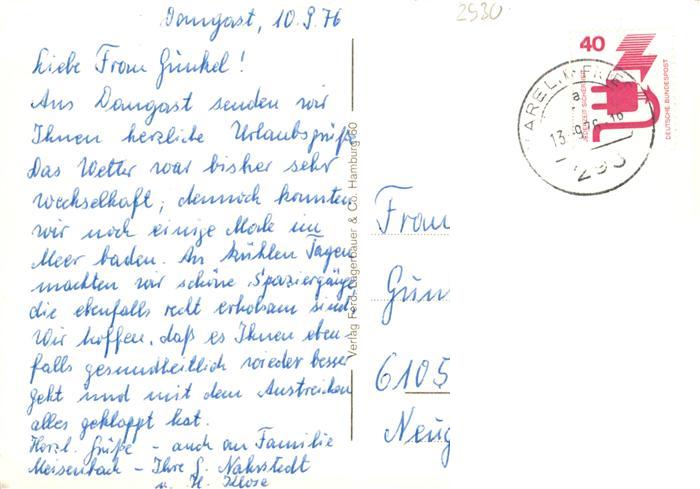 Dangast, 10.9.76
2930
Liebe Frau Günkel!
Aus Dangast senden wir
Ihnen herzliche Urlaubsgrüße
Das Wetter war bisher sehr
wechselhaft; dennoch konnten
wir noch einige Male im
Meer baden. An kühlen Tagen
machten wir schöne Spaziergänge
die ebenfalls recht erholsam sind.
Wir hoffen, daß es Ihnen eben-
falls gesundheitlich wieder besser
geht und mit dem Austreichen
alles geklappt hat.
Herzl. Grüße - auch an Familie
Meisenbach - Ihre G. Nahrstedt
u. H. Klose
Verlag Ferd. Lagerbauer & Co. Hamburg 60
Frau
Gün
6105
Neug
40
JEDERZEIT SICHERHEIT
DEUTSCHE BUNDESPOST
VAREL
13.
293